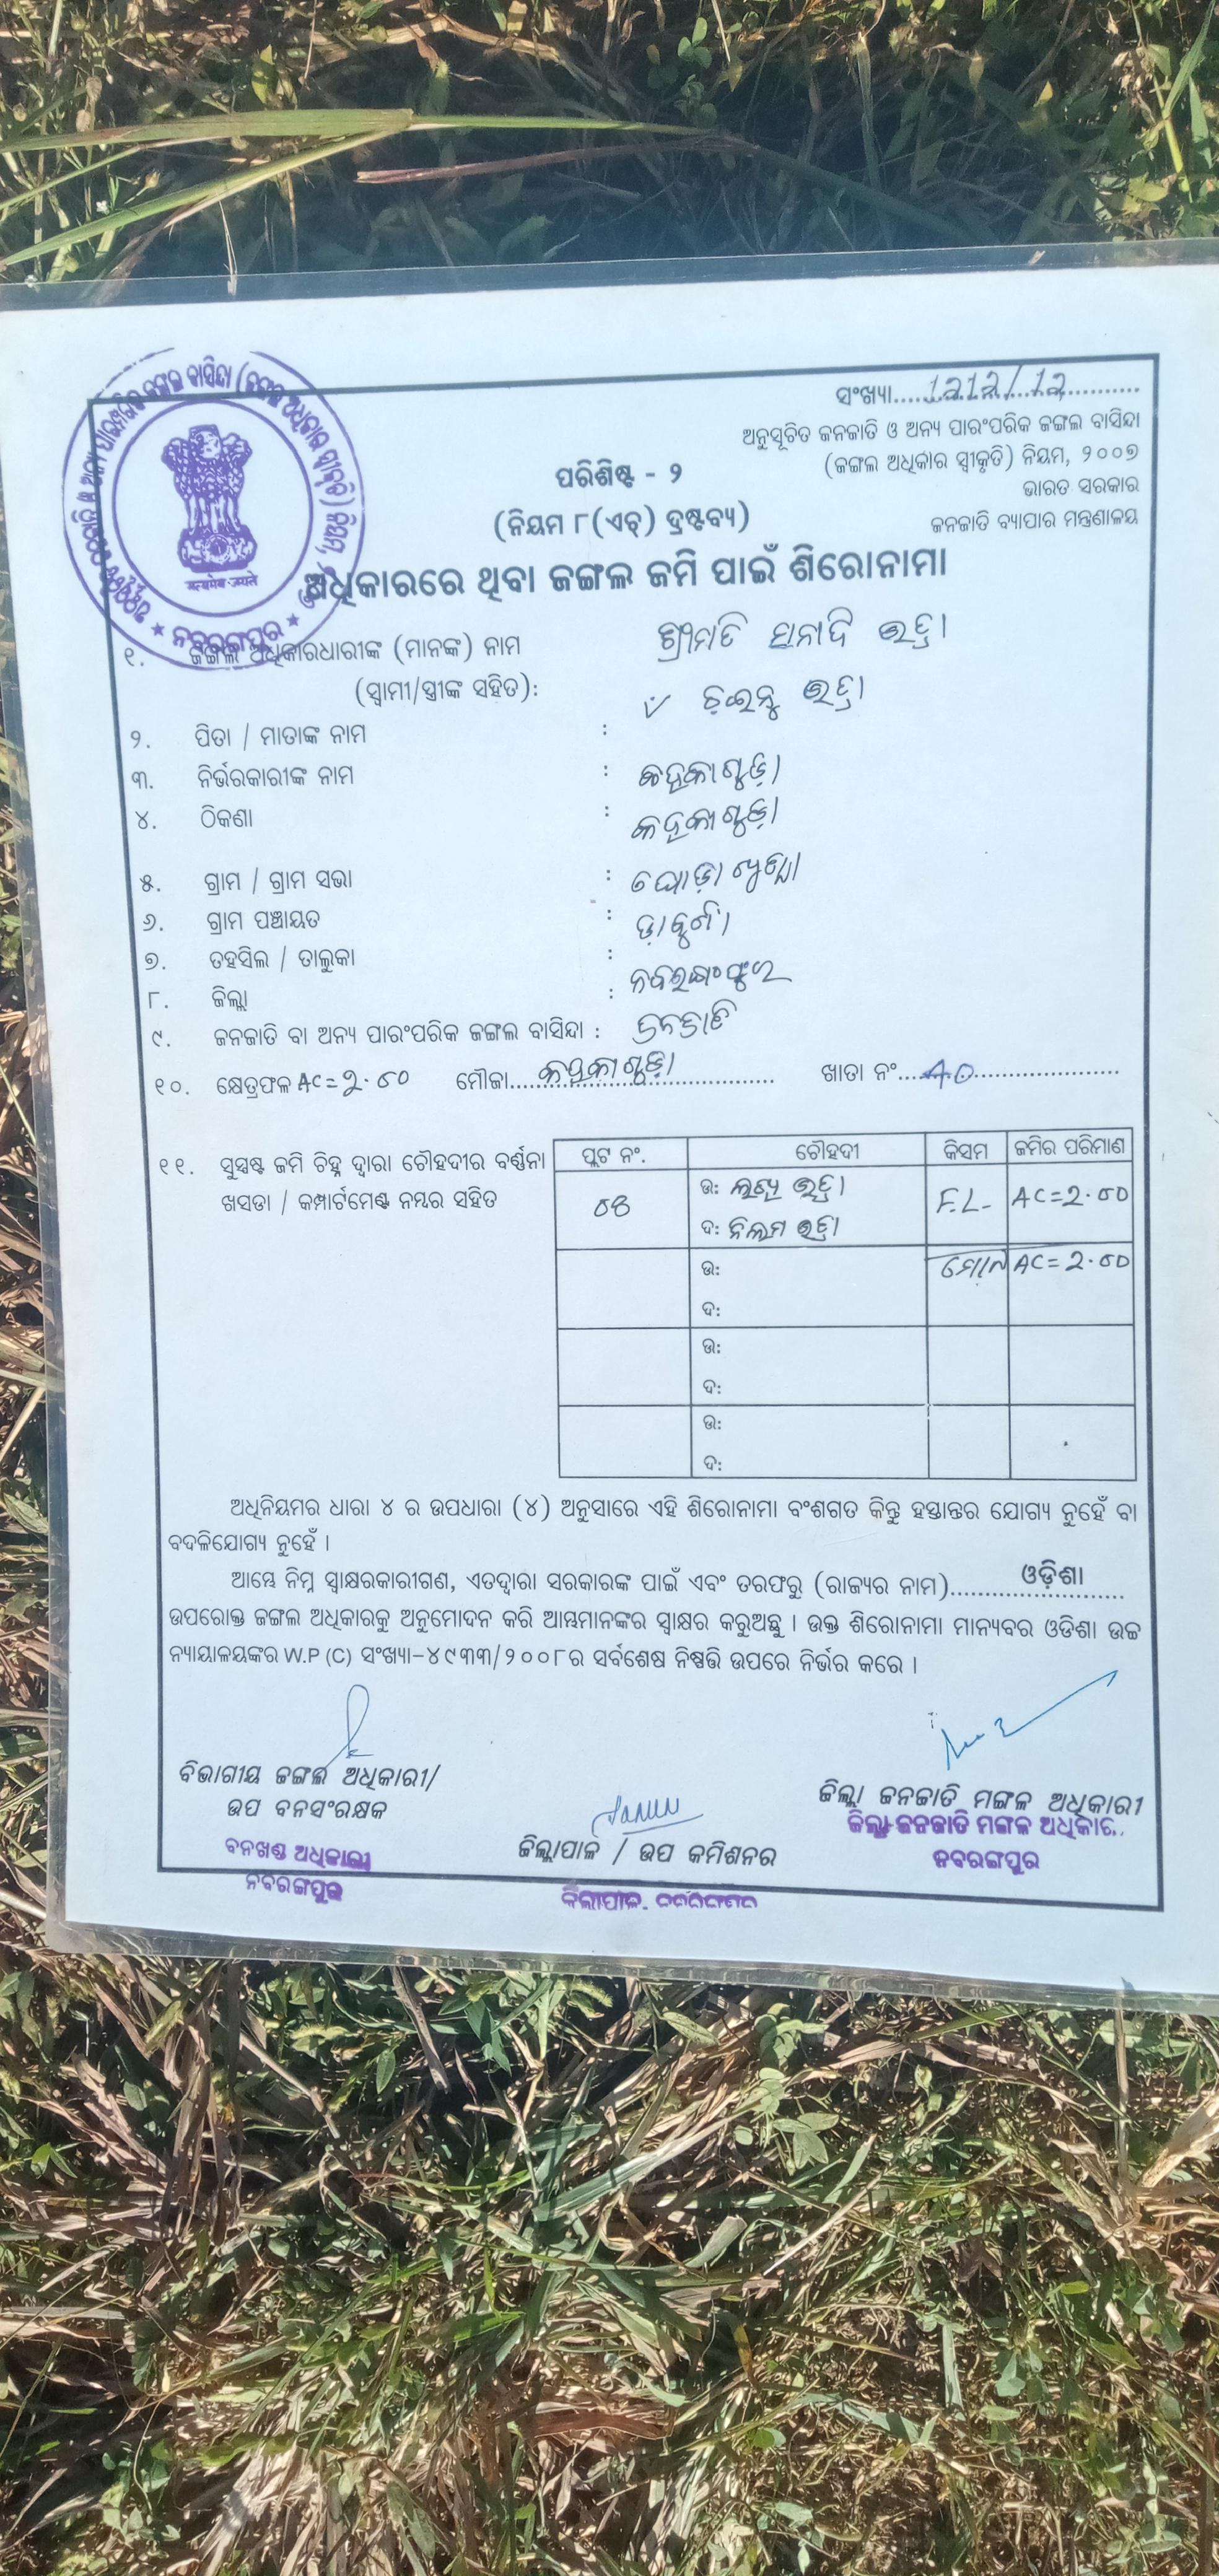 ସଂଖ୍ୟା....1212/12....
ଅନୁସୂଚିତ ଜନଜାତି ଓ ଅନ୍ୟ ପାରଂପରିକ ଜଙ୍ଗଲ ବାସିନ୍ଦା
(ଜଙ୍ଗଲ ଅଧିକାର ସ୍ୱୀକୃତି) ନିୟମ, ୨୦୦୭
ଭାରତ ସରକାର
ଜନଜାତି ବ୍ୟାପାର ମନ୍ତ୍ରଣାଳୟ
ପରିଶିଷ୍ଟ - ୨
(ନିୟମ ୮(ଏଚ୍) ଦ୍ରଷ୍ଟବ୍ୟ)
ଅଧିକାରରେ ଥିବା ଜଙ୍ଗଲ ଜମି ପାଇଁ ଶିରୋନାମା
ନବରଙ୍ଗପୁର
୧. ଜଙ୍ଗଲ ଅଧିକାରଧାରୀଙ୍କ (ମାନଙ୍କ) ନାମ ଶ୍ରୀମତି
(ସ୍ୱାମୀ/ସ୍ତ୍ରୀଙ୍କ ସହିତ):
୨. ପିତା / ମାତାଙ୍କ ନାମ :
୩. ନିର୍ଭରକାରୀଙ୍କ ନାମ :
୪. ଠିକଣା :
୫. ଗ୍ରାମ / ଗ୍ରାମ ସଭା :
୬. ଗ୍ରାମ ପଞ୍ଚାୟତ :
୭. ତହସିଲ / ତାଲୁକା :
୮. ଜିଲ୍ଲା : ନବରଙ୍ଗପୁର
୯. ଜନଜାତି ବା ଅନ୍ୟ ପାରଂପରିକ ଜଙ୍ଗଲ ବାସିନ୍ଦା : ଜନଜାତି
୧୦. କ୍ଷେତ୍ରଫଳ AC= ମୌଜା.... ଖାତା ନଂ....
୧୧. ସୁସ୍ପଷ୍ଟ ଜମି ଚିହ୍ନ ଦ୍ୱାରା ଚୌହଦୀର ବର୍ଣ୍ଣନା
ଖସଡା / କମ୍ପାର୍ଟମେଣ୍ଟ ନମ୍ବର ସହିତ
ପ୍ଲଟ ନଂ. ଚୌହଦୀ କିସମ ଜମିର ପରିମାଣ
ଉ: F.L- AC=
ଦ:
ଉ: ମୋଟ AC=
ଦ:
ଉ:
ଦ:
ଉ:
ଦ:
ଅଧିନିୟମର ଧାରା ୪ ର ଉପଧାରା (୪) ଅନୁସାରେ ଏହି ଶିରୋନାମା ବଂଶଗତ କିନ୍ତୁ ହସ୍ତାନ୍ତର ଯୋଗ୍ୟ ନୁହେଁ ବା
ବଦଳିଯୋଗ୍ୟ ନୁହେଁ ।
ଆମ୍ଭେ ନିମ୍ନ ସ୍ୱାକ୍ଷରକାରୀଗଣ, ଏତଦ୍ୱାରା ସରକାରଙ୍କ ପାଇଁ ଏବଂ ତରଫରୁ (ରାଜ୍ୟର ନାମ)....ଓଡ଼ିଶା....
ଉପରୋକ୍ତ ଜଙ୍ଗଲ ଅଧିକାରକୁ ଅନୁମୋଦନ କରି ଆମ୍ଭମାନଙ୍କର ସ୍ୱାକ୍ଷର କରୁଅଛୁ । ଉକ୍ତ ଶିରୋନାମା ମାନ୍ୟବର ଓଡିଶା ଉଚ୍ଚ
ନ୍ୟାୟାଳୟଙ୍କର W.P (C) ସଂଖ୍ୟା-୪୯୩୩/୨୦୦୮ର ସର୍ବଶେଷ ନିଷ୍ପତ୍ତି ଉପରେ ନିର୍ଭର କରେ ।
ବିଭାଗୀୟ ଜଙ୍ଗଲ ଅଧିକାରୀ/
ଉପ ବନସଂରକ୍ଷକ
ବନଖଣ୍ଡ ଅଧିକାରୀ
ନବରଙ୍ଗପୁର
ଜିଲ୍ଲାପାଳ / ଉପ କମିଶନର
ଜିଲ୍ଲା ଜନଜାତି ମଙ୍ଗଳ ଅଧିକାରୀ
ଜିଲ୍ଲା ଜନଜାତି ମଙ୍ଗଳ ଅଧିକାରୀ
ନବରଙ୍ଗପୁର